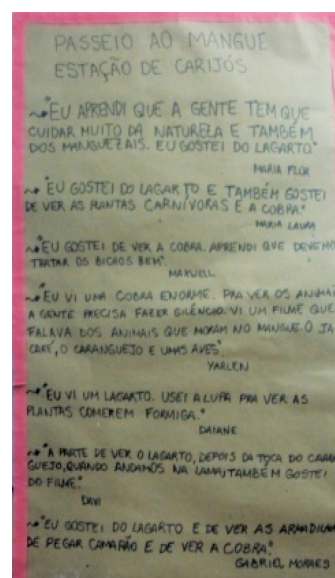 PASSEIO AO MANGUE
ESTAÇÃO DE CARIJÓS
"EU APRENDI QUE A GENTE TEM QUE
CUIDAR MUITO DA NATUREZA E TAMBÉM
DOS MANGUEZAIS. EU GOSTEI DO LAGARTO."
MARIA FLOR
"EU GOSTEI DO LAGARTO E TAMBÉM GOSTEI
DE VER AS PLANTAS CARNÍVORAS E A COBRA."
MARIA LAURA
"EU GOSTEI DE VER A COBRA. APRENDI QUE DEVEMO
TRATAR OS BICHOS BEM".
MAXUELL
"EU VI UMA COBRA ENORME. PRA VER OS ANIMAI
A GENTE PRECISA FAZER SILÊNCIO. VI UM FILME QUE
FALAVA DOS ANIMAIS QUE MORAM NO MANGUE. O JA
CARÉ, O CARANGUEJO E UMAS AVES".
YARLEN
"EU VI UM LAGARTO. USEI A LUPA PRA VER AS
PLANTAS COMEREM FORMIGA."
DAIANE
"A PARTE DE VER O LAGARTO, DEPOIS DA TOCA DO CARAN
GUEJO, QUANDO ANDAMOS NA LAMA, TAMBÉM GOSTEI
DO FILME."
DAVI
"EU GOSTEI DO LAGARTO E DE VER AS ARMADILHA
DE PEGAR CAMARÃO E DE VER A COBRA."
GABRIEL MORAES